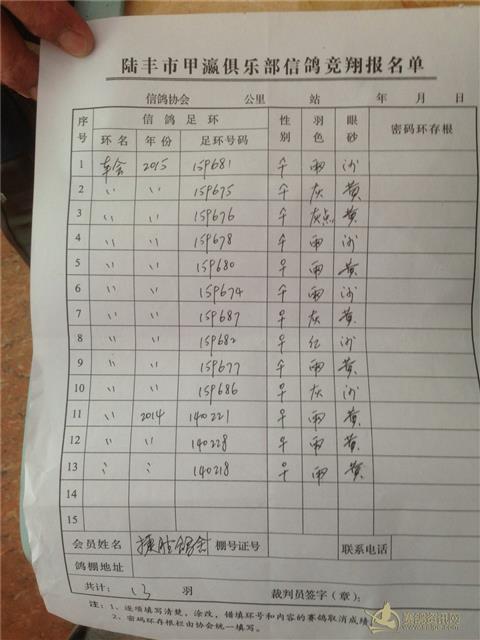 陆丰市甲瀛俱乐部信鸽竞翔报名单
信鸽协会 公里 站 年 月 日
序号 信鸽足环 性别 羽色 眼砂 密码环存根
环名 年份 足环号码
1 2015 159681 雨 沙
2 〃 〃 159675 灰 黄
3 〃 〃 159676 灰点 黄
4 〃 〃 159678 雨 沙
5 〃 〃 159680 雨 黄
6 〃 〃 159674 雨 沙
7 〃 〃 159687 灰 黄
8 〃 〃 159682 红 沙
9 〃 〃 159677 雨 黄
10 〃 〃 159686 灰 沙
11 〃 2014 140221 雨 黄
12 〃 〃 140228 雨 黄
13 〃 〃 140218 雨 黄
14
15
会员姓名 棚号证号 联系电话
鸽棚地址
共计: 13 羽 裁判员签字(章):
注:1、逐项填写清楚,涂改,错填环号和内容的赛鸽取消成绩
2、密码环存根由协会统一填写。